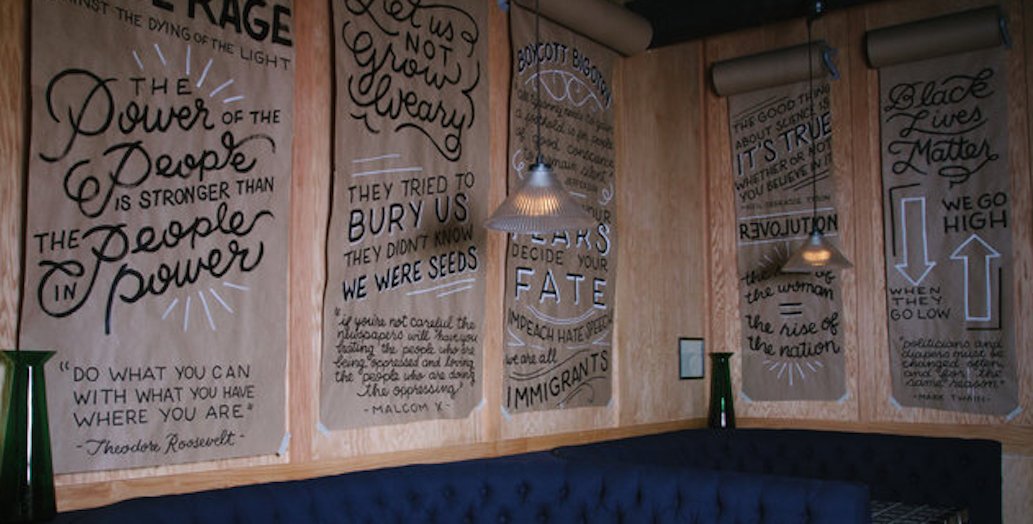 RAGE
AGAINST THE DYING OF THE LIGHT
THE
Power OF THE
People
IS STRONGER THAN
THE People
IN power
"DO WHAT YOU CAN
WITH WHAT YOU HAVE
WHERE YOU ARE"
-Theodore Roosevelt-
Let us
NOT
Grow
Weary
THEY TRIED TO
BURY US
THEY DIDN'T KNOW
WE WERE SEEDS
"if you're not careful the
newspapers will have you
hating the people who are
being oppressed and loving
the people who are doing
the oppressing"
-MALCOM X-
BOYCOTT BIGOTRY
foothold is for people
of good conscience
remain silent"
YOUR
DECIDE YOUR
FATE
IMPEACH HATE SPEECH
we are all
IMMIGRANTS
THE GOOD THING
ABOUT SCIENCE IS
IT'S TRUE
WHETHER OR NOT
YOU BELIEVE IN IT
REVOLUTION
the rise of
the woman
=
the rise of
the nation
Black
Lives
Matter
WE GO
HIGH
WHEN
THEY
GO LOW
"politicians and
diapers must be
changed often
and for the
same reason"
-MARK TWAIN-